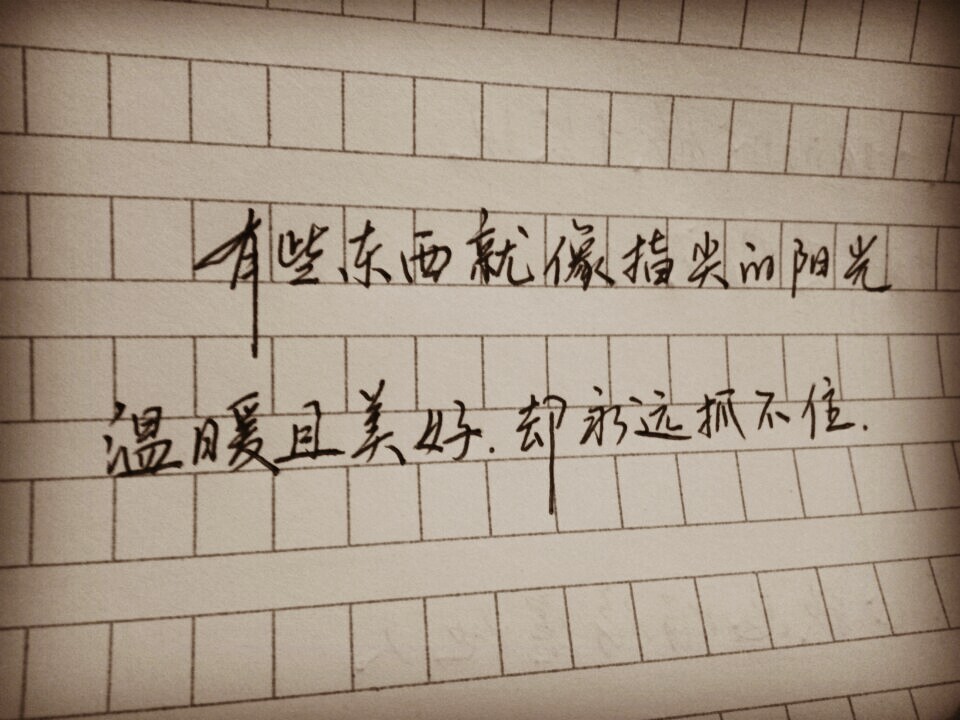 有些东西就像指尖的阳光
温暖且美好.却永远抓不住.